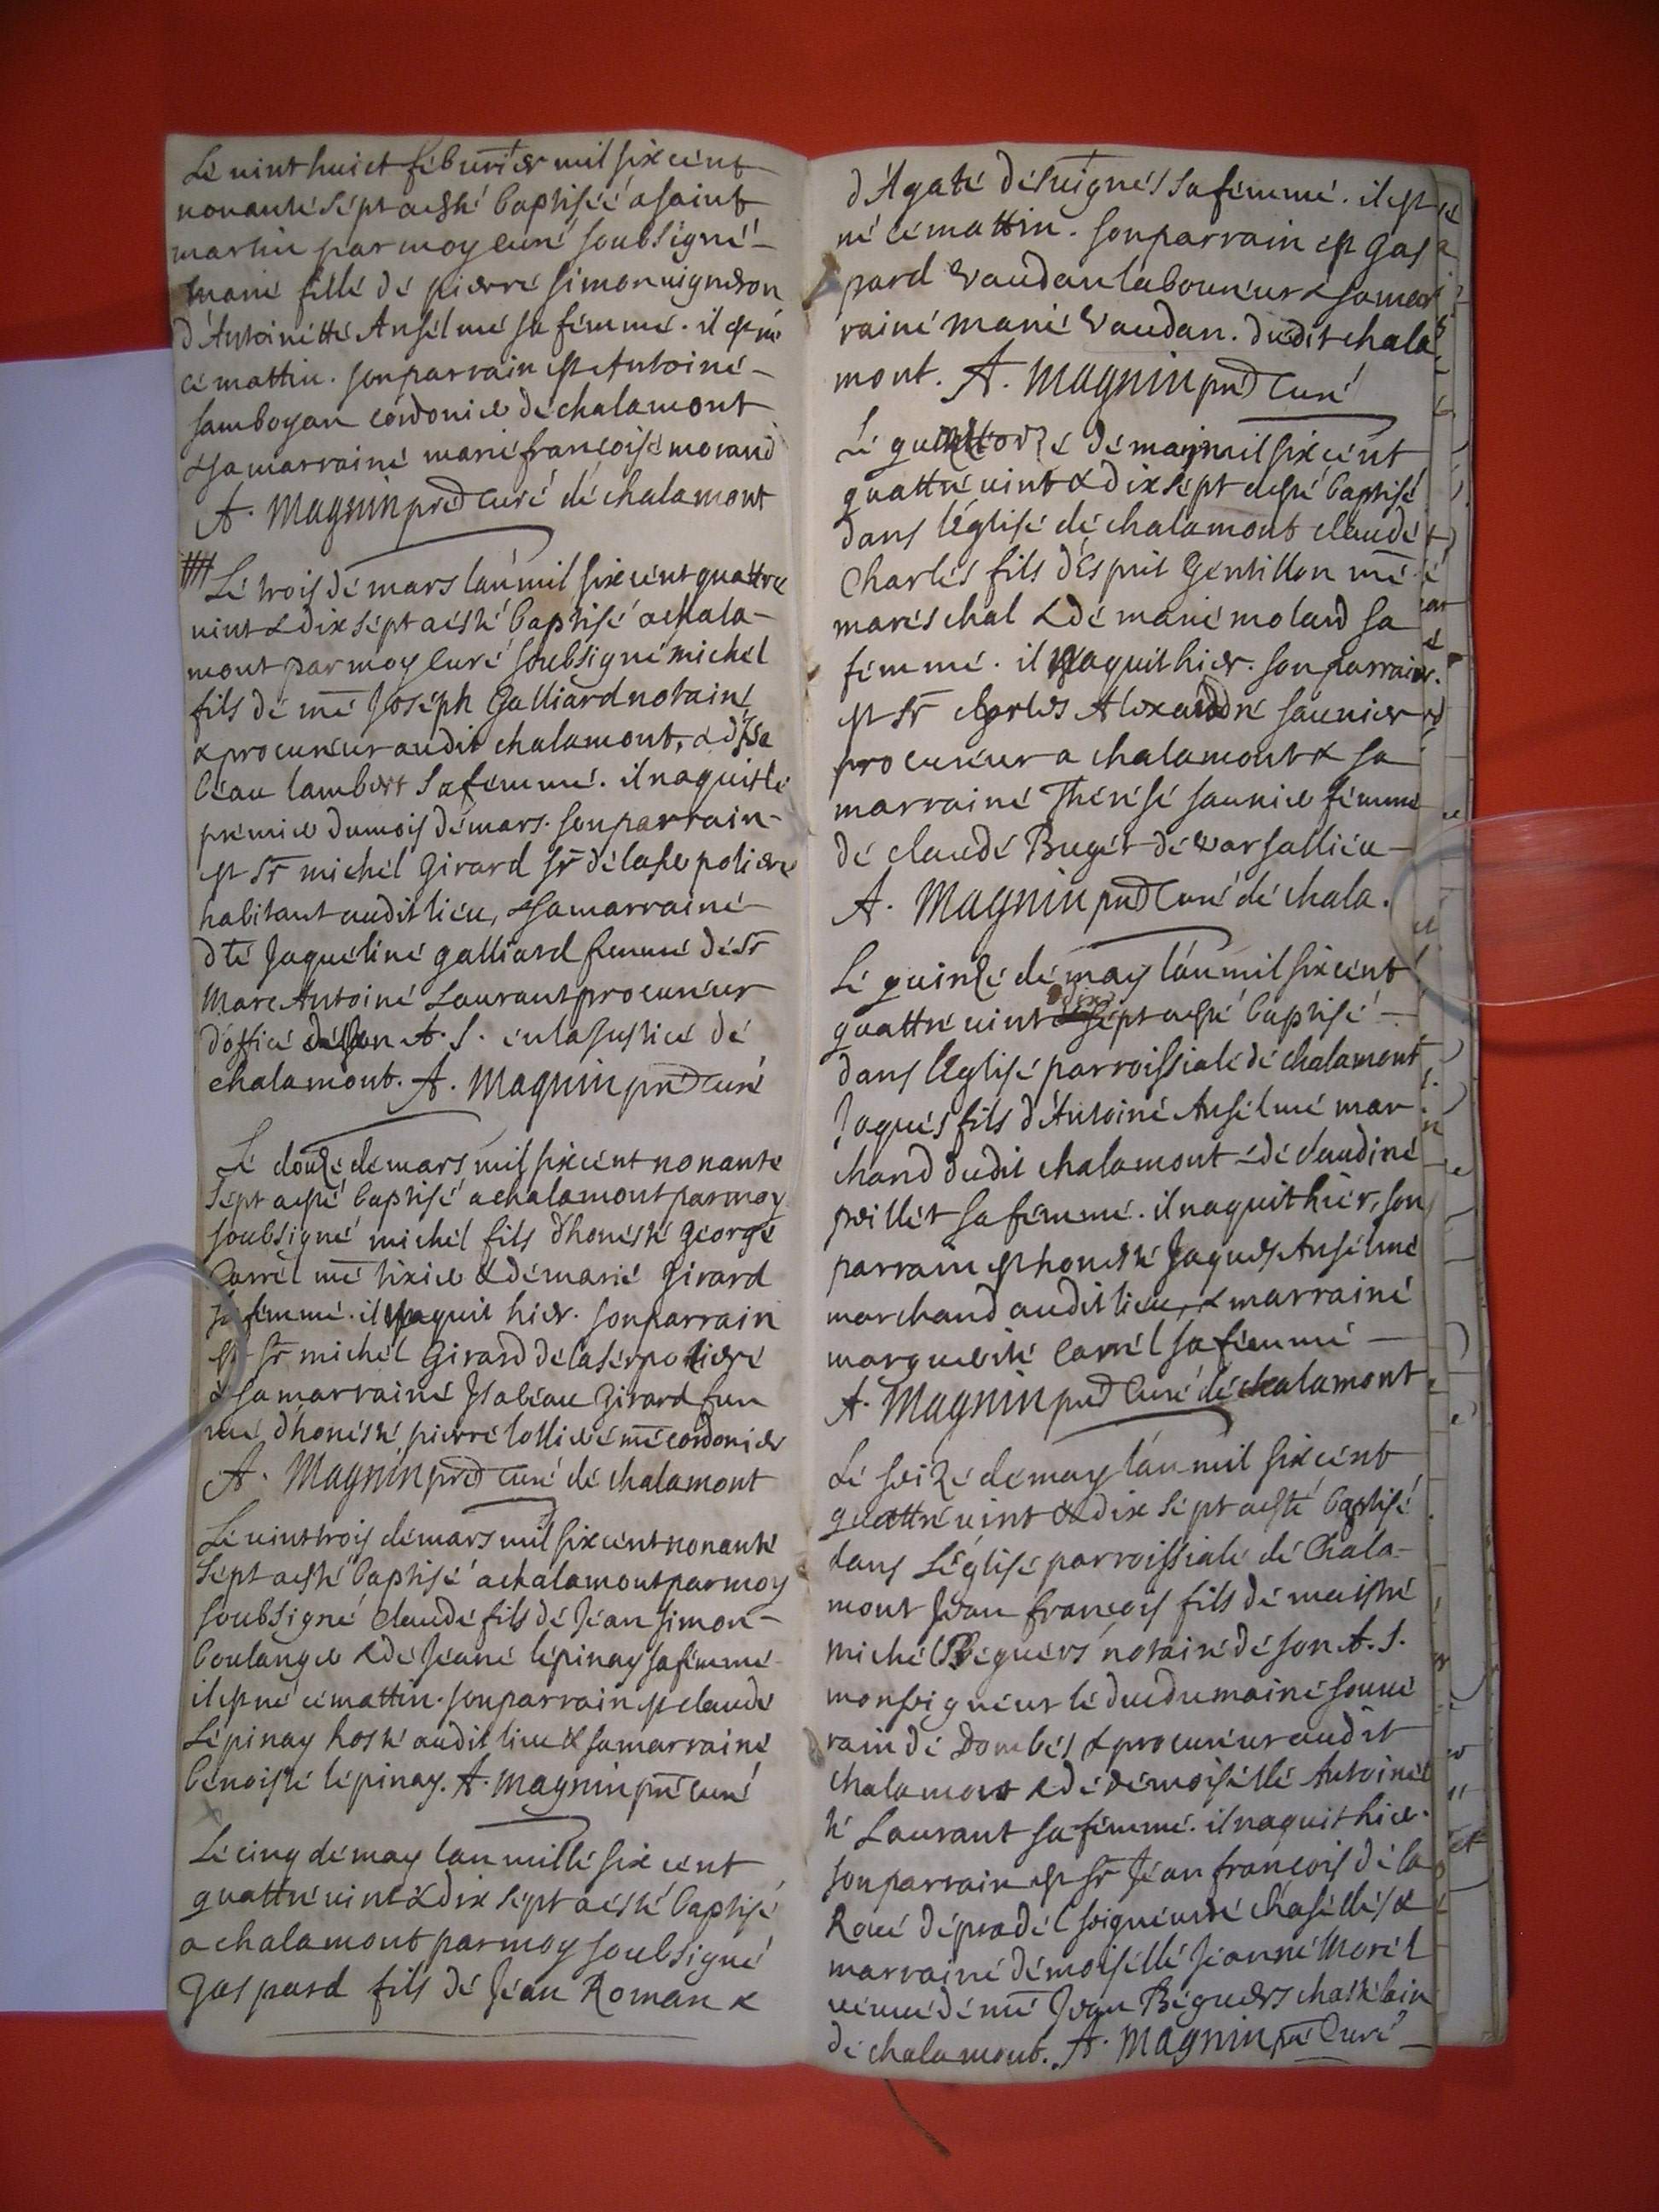 Le vint huict feburier mil six cent
nonante sept a esté baptiseé a saint
martin par moy curé soubsigné
marie fille de pierre simon vigneron
d'Antoinette Anselme sa femme. il est né
ce mattin. son parrain est Antoine
Jamboyan cordonier de chalamont
& sa marraine marie francoise morand
A. Magnin pred curé de chalamont
Le trois de mars l'an mil six cent quattre
vint & dix sept a esté baptisé a chala-
mont par moy curé soubsigné michel
fils de me Joseph Galliard notaire
& procureur audit chalamont, & d'Isa
beau lambert sa femme. il naquit le
premier du mois de mars. son parrain
est sr michel Girard sr de la serpoliere
habitant audit lieu, & sa marraine
dte Jaqueline galliard femme de sr
Marc Antoine Laurant procureur
d'office de son A. S. en la justice de
chalamont. A. Magnin pred curé
Le douze de mars mil six cent nonante
sept a esté baptisé a chalamont par moy
soubsigné michel fils d'honeste George
Carrel me tixier & de marie Girard
sa femme. il naquit hier. son parrain
est sr michel Girard de la serpoliere
& sa marraine Isabeau Girard fem
me d'honeste pierre me cordonier
A. Magnin pred curé de chalamont
Le vint trois de mars mil six cent nonante
sept a esté baptisé a chalamont par moy
soubsigné Claude fils de Jean simon
boulanger & de Jeane lépinay sa femme
il est né ce mattin. son parrain est claude
Lépinay hoste audit lieu & sa marraine
benoiste lépinay. A. Magnin pre curé
Le cinq de may l'an mille six cent
quattre vint & dix sept a esté baptisé
a chalamont par moy soubsigné
Gaspard fils de Jean Roman &
d'Agate desvignes sa femme. il est
né ce mattin. son parrain est Gas
pard Vaudan laboureur & sa mar
raine marie Vaudan. dudit chala
mont. A. Magnin pred curé
Le quattorze de may mil six cent
quattre vint & dix sept a esté baptisé
dans l'église de chalamont claude
Charles fils d'Esprit Gentillon me
mareschal & de marie molard sa
femme. il naquit hier. son parrain
est sr charles Alexandre saunier
procureur a chalamont & sa
marraine Therese saunier femme
de claude Buget de varsallieu
A. Magnin pred curé de chala.
Le quinze de may l'an mil six cent
quattre vint dix sept a esté baptisé
dans l'Eglise parroissiale de chalamont
Jaques fils d'Antoine Anselme mar
chand dudit chalamont & de claudine
peillet sa femme. il naquit hier, son
parrain est honeste Jaques Anselme
marchand audit lieu, & marraine
marguerite Carrel sa femme
A. Magnin pred curé de chalamont
Le seize de may l'an mil six cent
quattre vint & dix sept a esté baptisé
dans L'église parroissiale de Chala-
mont Jean francois fils de maistre
michel Beguers notaire de son A. S.
monseigneur le duc du maine souve
rain de Dombes & procureur audit
chalamont & de demoiselle Antoinet
te Laurant sa femme. il naquit hier.
son parrain est sr Jean francois de la
Roue de pradel seigneur de chaselles &
marraine demoiselle Jeanne Morel
veuve de me Jean Beguers chastelain
de chalamont. A. Magnin pre Curé